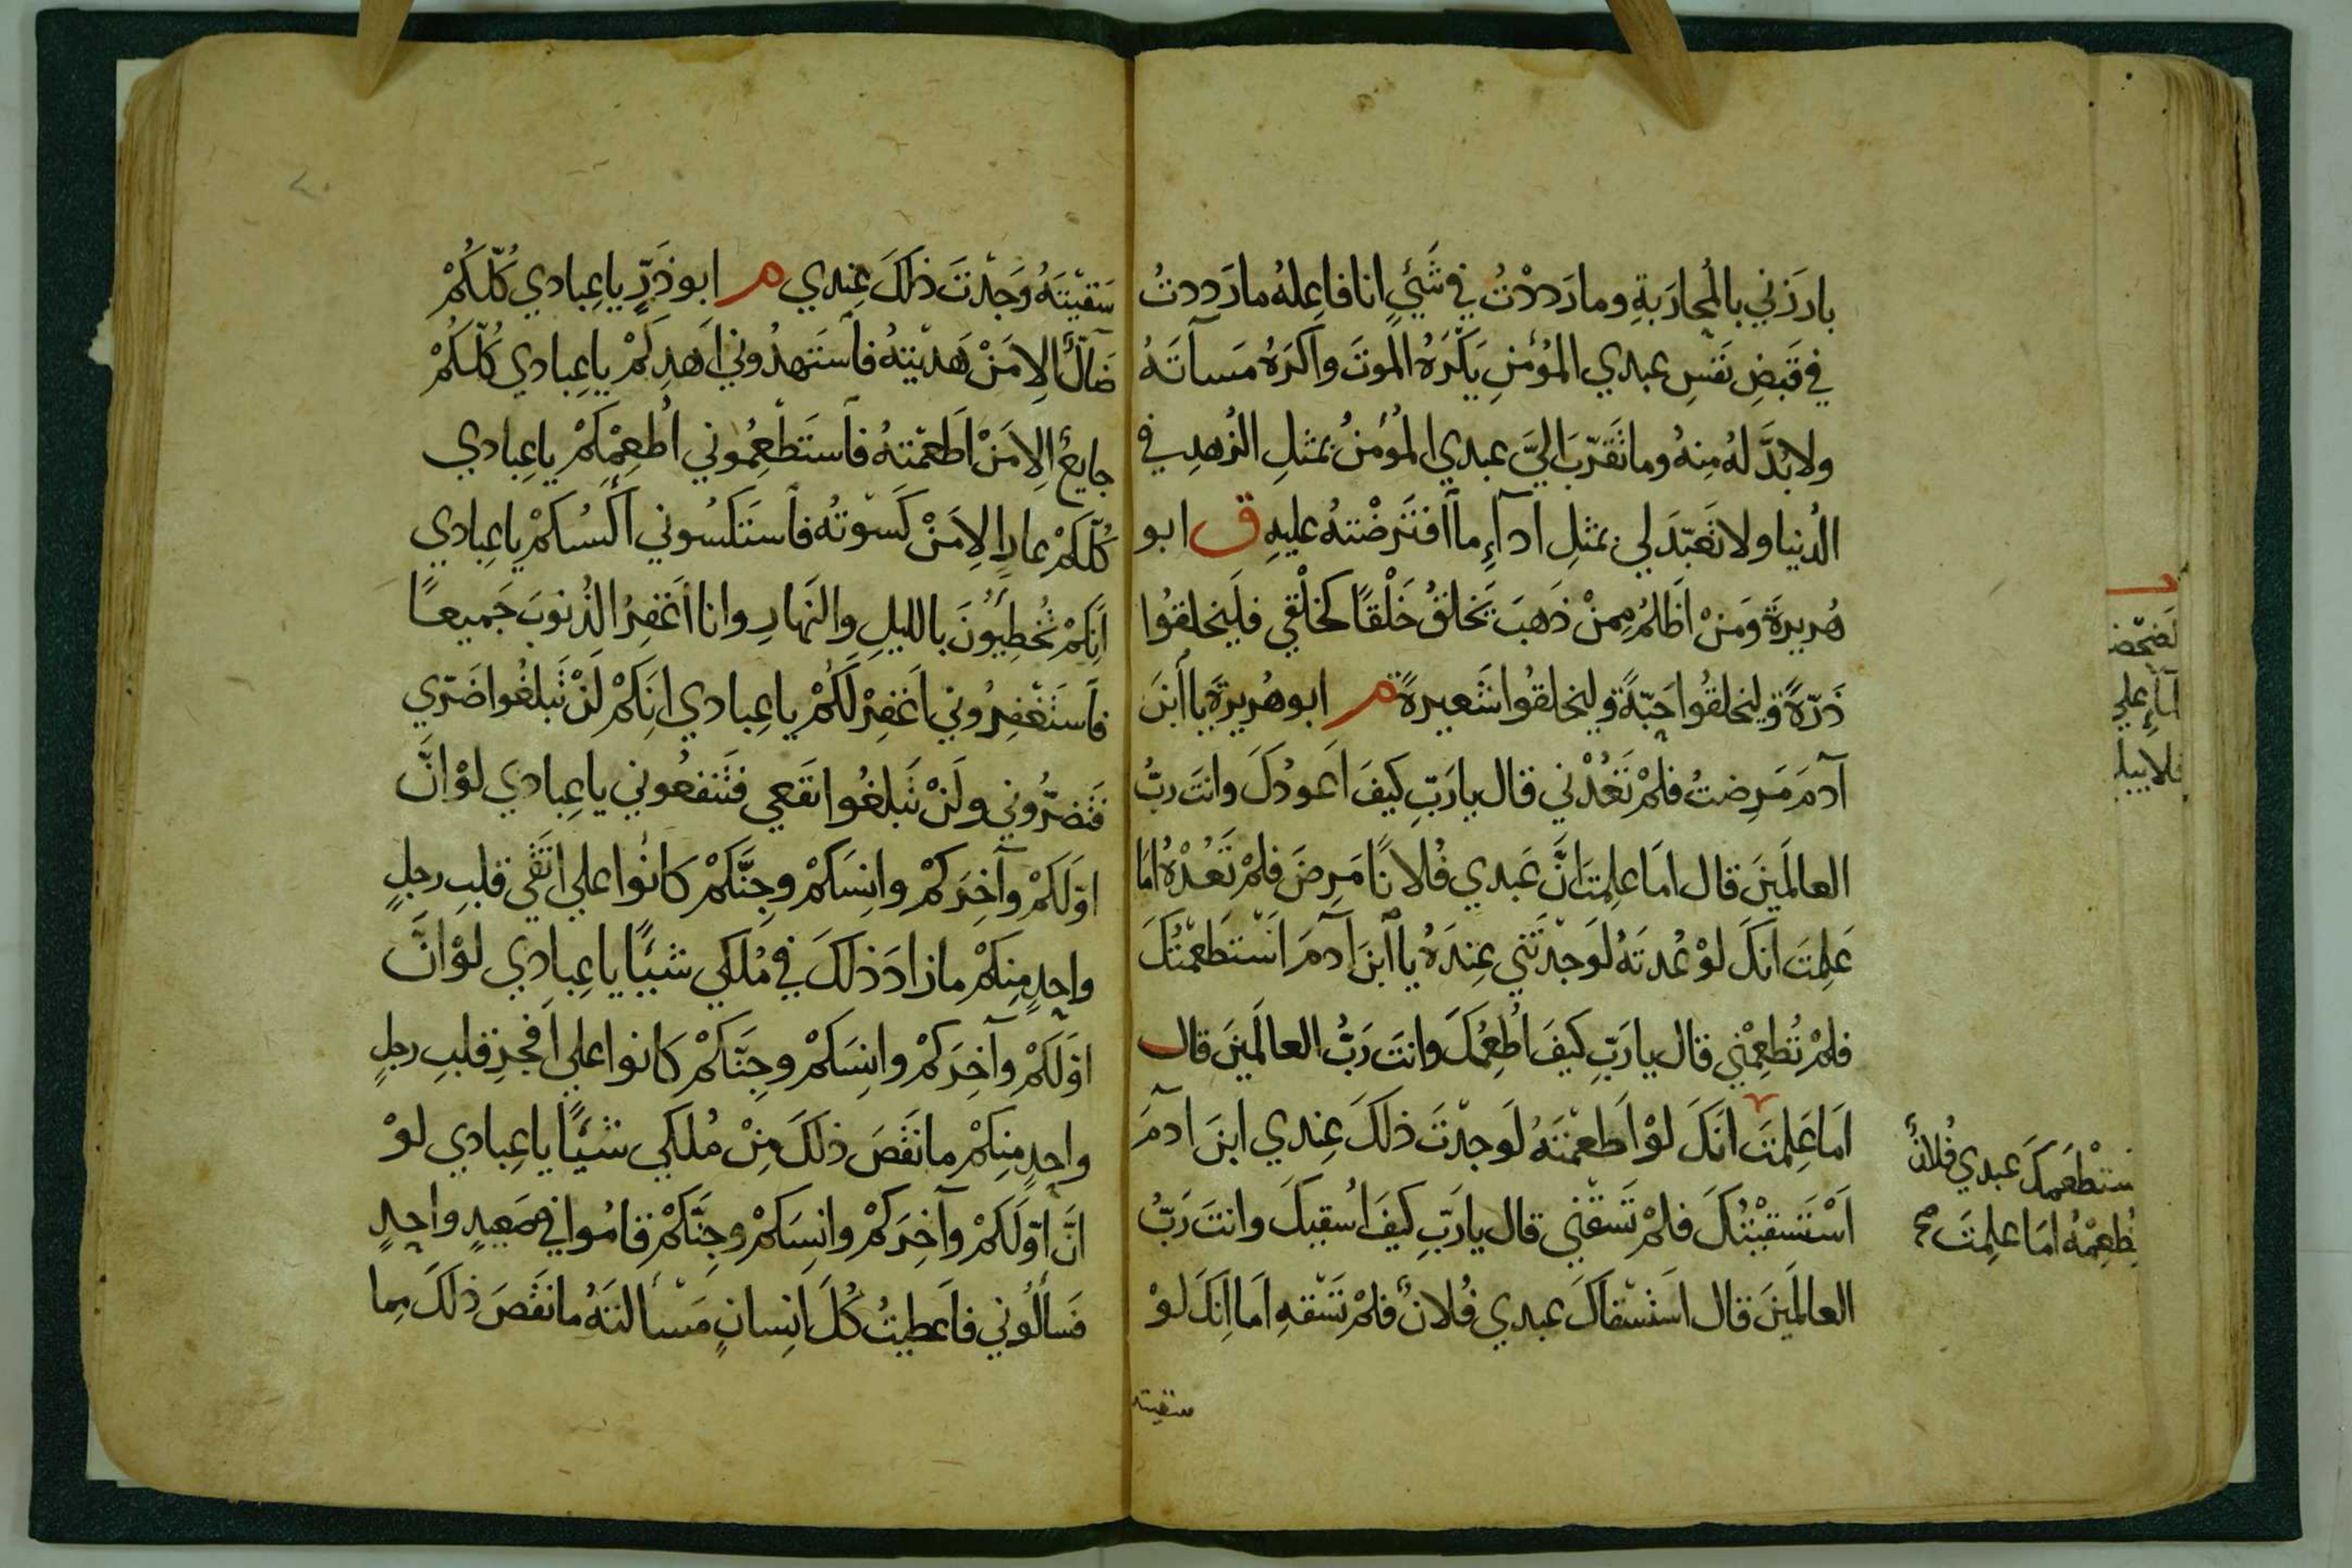 بارَزَني بالمُحارَبةِ وما رَددْتُ في شَيْءٍ انا فاعِلهُ ما رَددتُ
في قَبضِ نَفسِ عبدي المؤمنِ يَكْرَهُ الموتَ واكرَهُ مَسآتَهُ
ولا بُدَّ لهُ مِنهُ وما تَقرّبَ اليَّ عبدي المؤمنُ بمثلِ الزُهدِ في
الدُنيا ولا تَعَبّدَ لي بمثلِ ادآءِ ما اَفتَرضْتهُ عليهِ ق ابو
هُريرةَ وَمَنْ اَظْلمُ مِمنْ ذَهبَ يَخلقُ خَلْقًا كخَلْقي فليَخلقُوا
ذَرّةً وليَخلقُوا حَبّةً وليَخلقُوا شَعيرةً م ابو هُريرةَ يا ابنَ
آدمَ مَرِضتُ فلمْ تَعُدْني قال يا رَبِّ كيفَ اَعودُكَ وانتَ ربُّ
العالَمينَ قال امَا علِمتَ انَّ عَبدي فُلانًا مَرِضَ فلمْ تَعُدْهُ امَا
عَلِمتَ انكَ لوْ عُدتَهُ لَوجدْتَني عِندَهُ يا ابنَ آدمَ اسْتطعَمْتُكَ
فلمْ تُطعِمْني قال يا رَبِّ كيفَ اُطعِمُكَ وانتَ رَبُّ العالَمينَ قال
اَما عَلِمتَ انَكَ لوْ اَطعَمْتَهُ لَوجدْتَ ذلكَ عِندي ابنَ ادمَ
اَسْتَسقيْتُكَ فلمْ تَسقْني قال يا رَبِّ كيفَ اُسقيكَ وانتَ رَبُّ
العالَمينَ قال اسَتسْقاكَ عبدي فُلانٌ فلمْ تَسْقهِ اَما اِنكَ لوْ
سقيته
لا
ستطعمكَ عبدي فُلانٌ
تُطعِمْهُ امَا علِمتَ صح
سَقيْتَهُ وَجدْتَ ذلكَ عِندي م ابو ذَرٍّ يا عِبادي كُلّكُمْ
ضَآلٌّ الا مَنْ هَديْتهُ فاَستَهدُوني اَهدِكمْ يا عِبادي كُلّكُمْ
جايعٌ الا مَنْ اَطعَمْتهُ فاَستَطْعِمُوني اُطْعِمْكمْ يا عِبادي
كُلّكمْ عارٍ الا مَنْ كَسَوْتُه فاَستَكسُوني اَكْسُكمْ يا عِبادي
اِنكمْ تُخطِئونَ بالليلِ والنَهارِ وانا اَغفِرُ الذُنوبَ جَميعًا
فاَستَغْفِرُوني اَغفِرْ لَكمْ يا عِبادي اِنكمْ لَنْ تَبلغُوا ضَرّي
فتَضرُّوني ولَنْ تَبلغُوا نَفعي فتَنفعُوني يا عِبادي لوْ انَّ
اوّلَكمْ وآخِرَكمْ وانِسَكمْ وجِنَّكمْ كانُوا علي اَتقَي قلبِ رجلٍ
واحدٍ مِنكمْ ما زادَ ذلكَ في مُلكي شَيْئًا يا عِبادي لوْ انَّ
اوّلَكمْ وآخِرَكمْ وانِسَكمْ وجِنّكمْ كانوا علي اَفجرِ قلبِ رجلٍ
واحدٍ مِنكمْ ما نَقَصَ ذلكَ مِنْ مُلكي شَيْئًا يا عِبادي لوْ
انَّ اوّلَكمْ وآخِرَكمْ وانِسَكمْ وجِنَّكمْ قامُوا في صَعيدٍ واحِدٍ
فَسألُوني فاَعطيتُ كُلَ اِنسانٍ مَسْألتَهُ ما نَقَصَ ذلكَ مِما